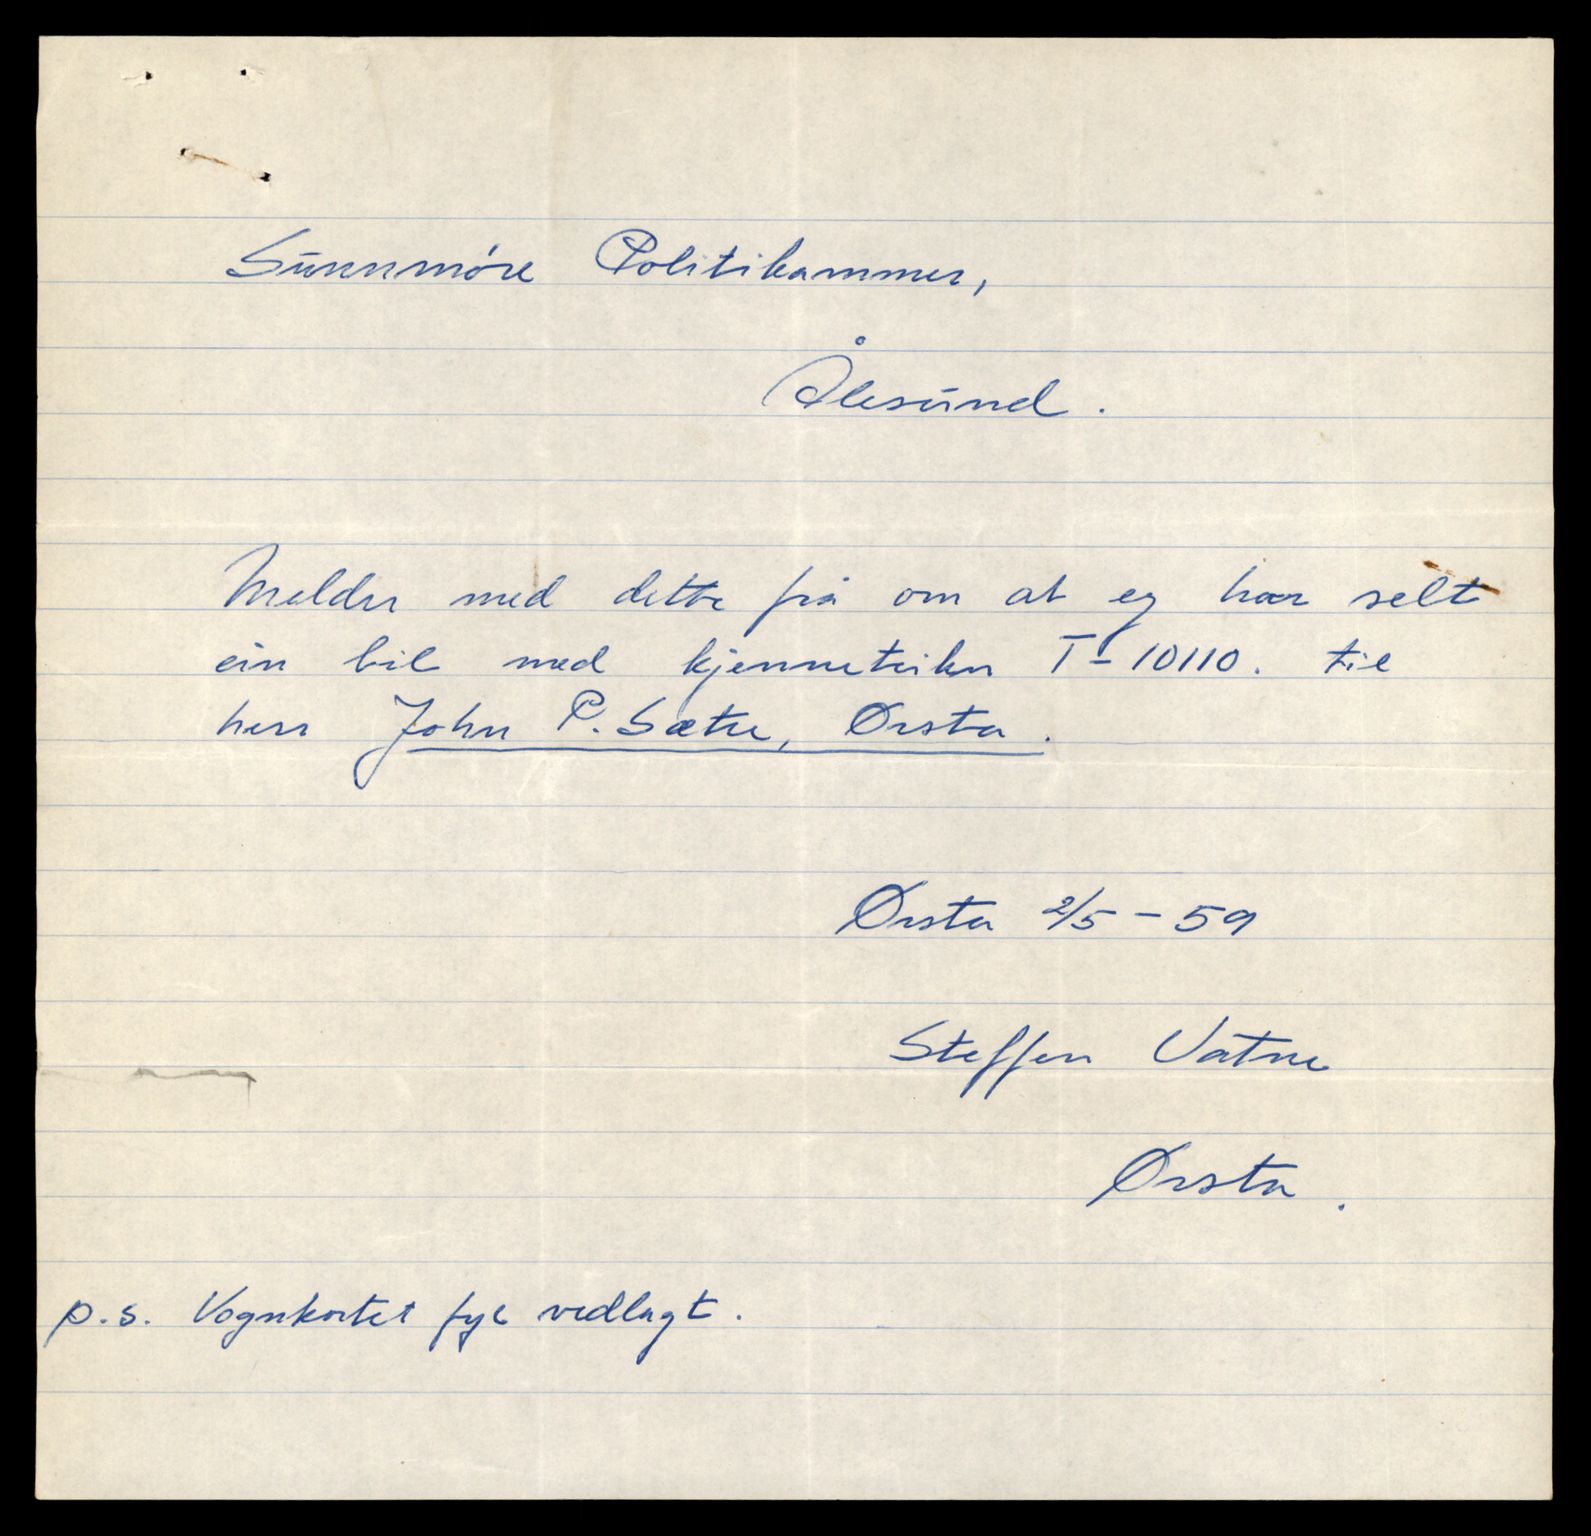 Sunnmóre Politikammer,
Ålesund.
Melder med dette frå om at eg har selt
ein bil med kjenneteikn T-10110. til
herr John P. Sætre, Ørsta.
Ørsta 2/5-59
Steffen Vatne
Ørsta.
p.s. Vognkortet fyl vedlagt.